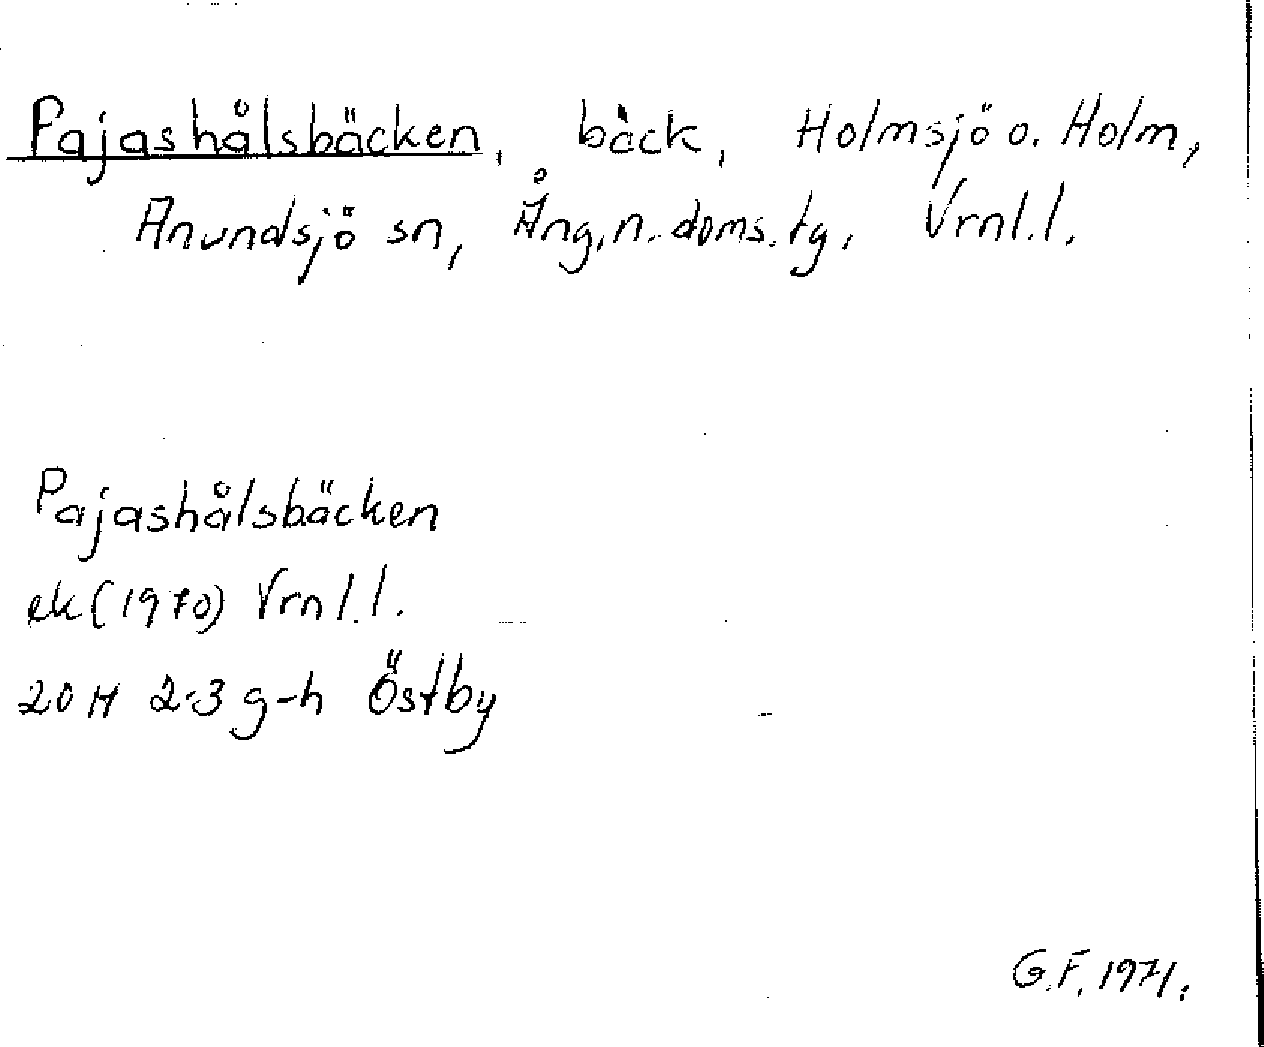 Pajashålsbäcken, bäck, Holmsjö o. Holm,
Anundsjö sn, Ång.n. doms. tg, Vrnl.l.
Pajashålsbäcken
ek (1970) Vrnl.l.
20 H 2-3 g-h Östby
G.F. 1971.